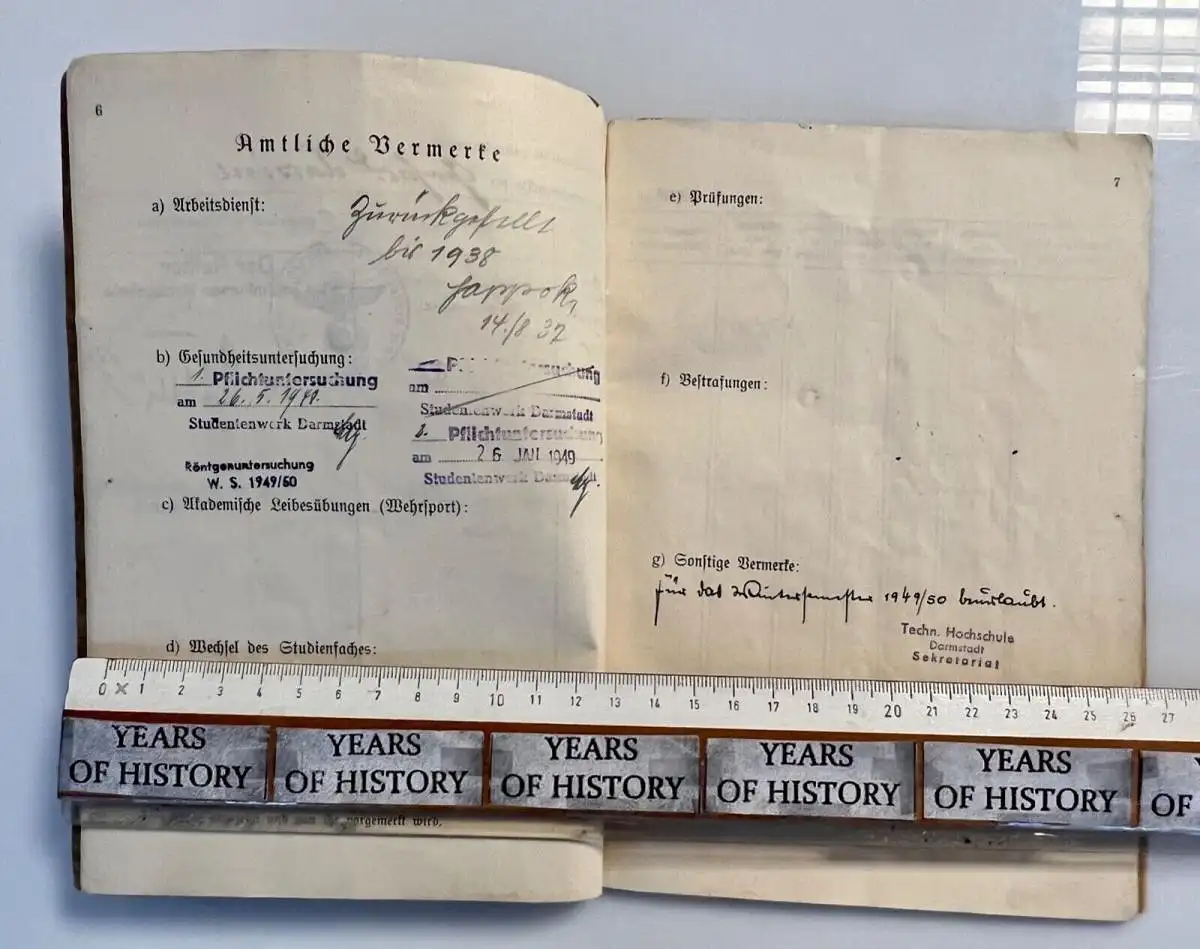 6
Amtliche Vermerke
a) Arbeitsdienst:
Zurückgestellt
bis 1938
14./8 37
b) Gesundheitsuntersuchung:
1. Pflichtuntersuchung
am 26. 5. 19
Studentenwerk Darmstadt
Röntgenuntersuchung
W. S. 1949/50
am
Studentenwerk Darmstadt
2. Pflichtuntersuchung
am 26 JAN 1949
Studentenwerk
c) Akademische Leibesübungen (Wehrsport):
d) Wechsel des Studienfaches:
vorgemerkt wird.
7
e) Prüfungen:
f) Bestrafungen:
g) Sonstige Vermerke:
Für das Wintersemester 1949/50 beurlaubt.
Techn. Hochschule
Darmstadt
Sekretariat
0 1 2 3 4 5 6 7 8 9 10 11 12 13 14 15 16 17 18 19 20 21 22 23 24 25 26 27
YEARS
OF HISTORY
YEARS
OF HISTORY
YEARS
OF HISTORY
YEARS
OF HISTORY
YEARS
OF HISTORY
OF